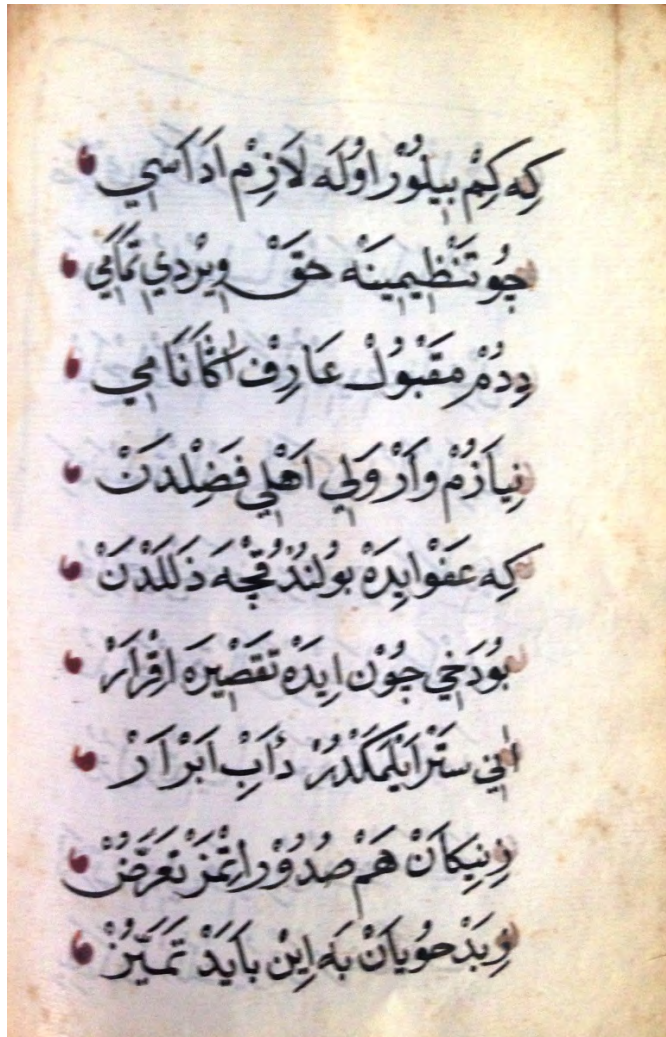 كِه كِمْ بِيلُوْر اوُلَه لَازِمْ اَدَاسِي
چُو تَنْظِيمِينَه حَقْ وِيْردِي تَمَامِي
دِدُمْ مَقْبُولْ عَارِفْ اٰكَا نَامِي
نِيَازُمْ وَارْ وَلِي اَهْلِي فَضِلْدَنْ
كِه عَفْو ايِدَهْ بُولُنْدُقچَه ذَلَلدَنْ
بُودَخِي چُوْن اِيدَهْ تَقْصِيرَه اِقْرَارْ
اٰنِي سَتْر اَيْلَمَكْدُرْ دَأبِ اَبْرَارْ
زِنِيكَانْ هَمْ صُدُوْر اِتْمَزْ تَعَرَّضْ
زِبَدْخُويَانْ بَه اِيْن بَايَدْ تَمَيَّزْ